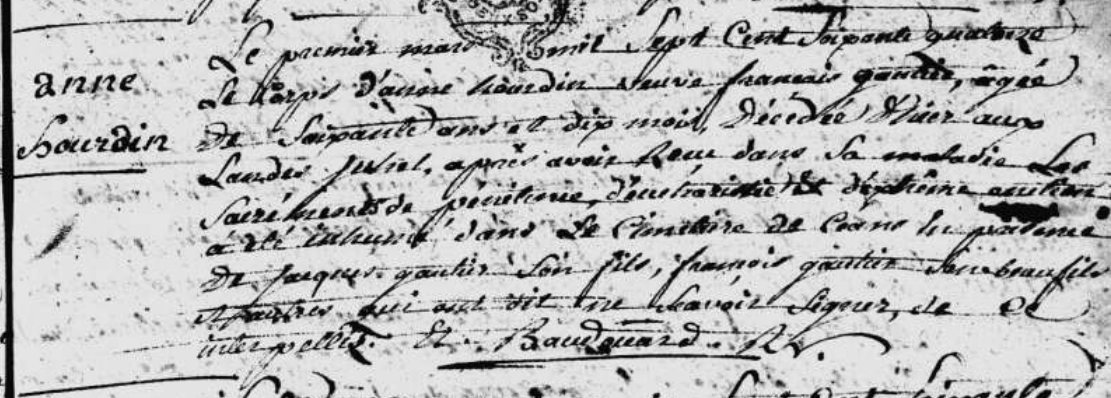 anne
hourdin
Le premier mars mil Sept Cent Soixante quatorze
Le Corps d'anne hourdin veuve francois gautier, âgée
De Soixante ans et dix mois, Décédée Hier aux
Landes Juhel, après avoir Reçu dans Sa maladie Les
Sacréments de pénitence, d'eucharistie & d'extrême onction
à été inhumé dans Le Cimetiere de Ceans en presence
De Jacques gautier Son fils, francois gautier Son beaufils
et autres qui ont dit ne Savoir Signer, de Ce
interpellés. Et. Baudouard. R.